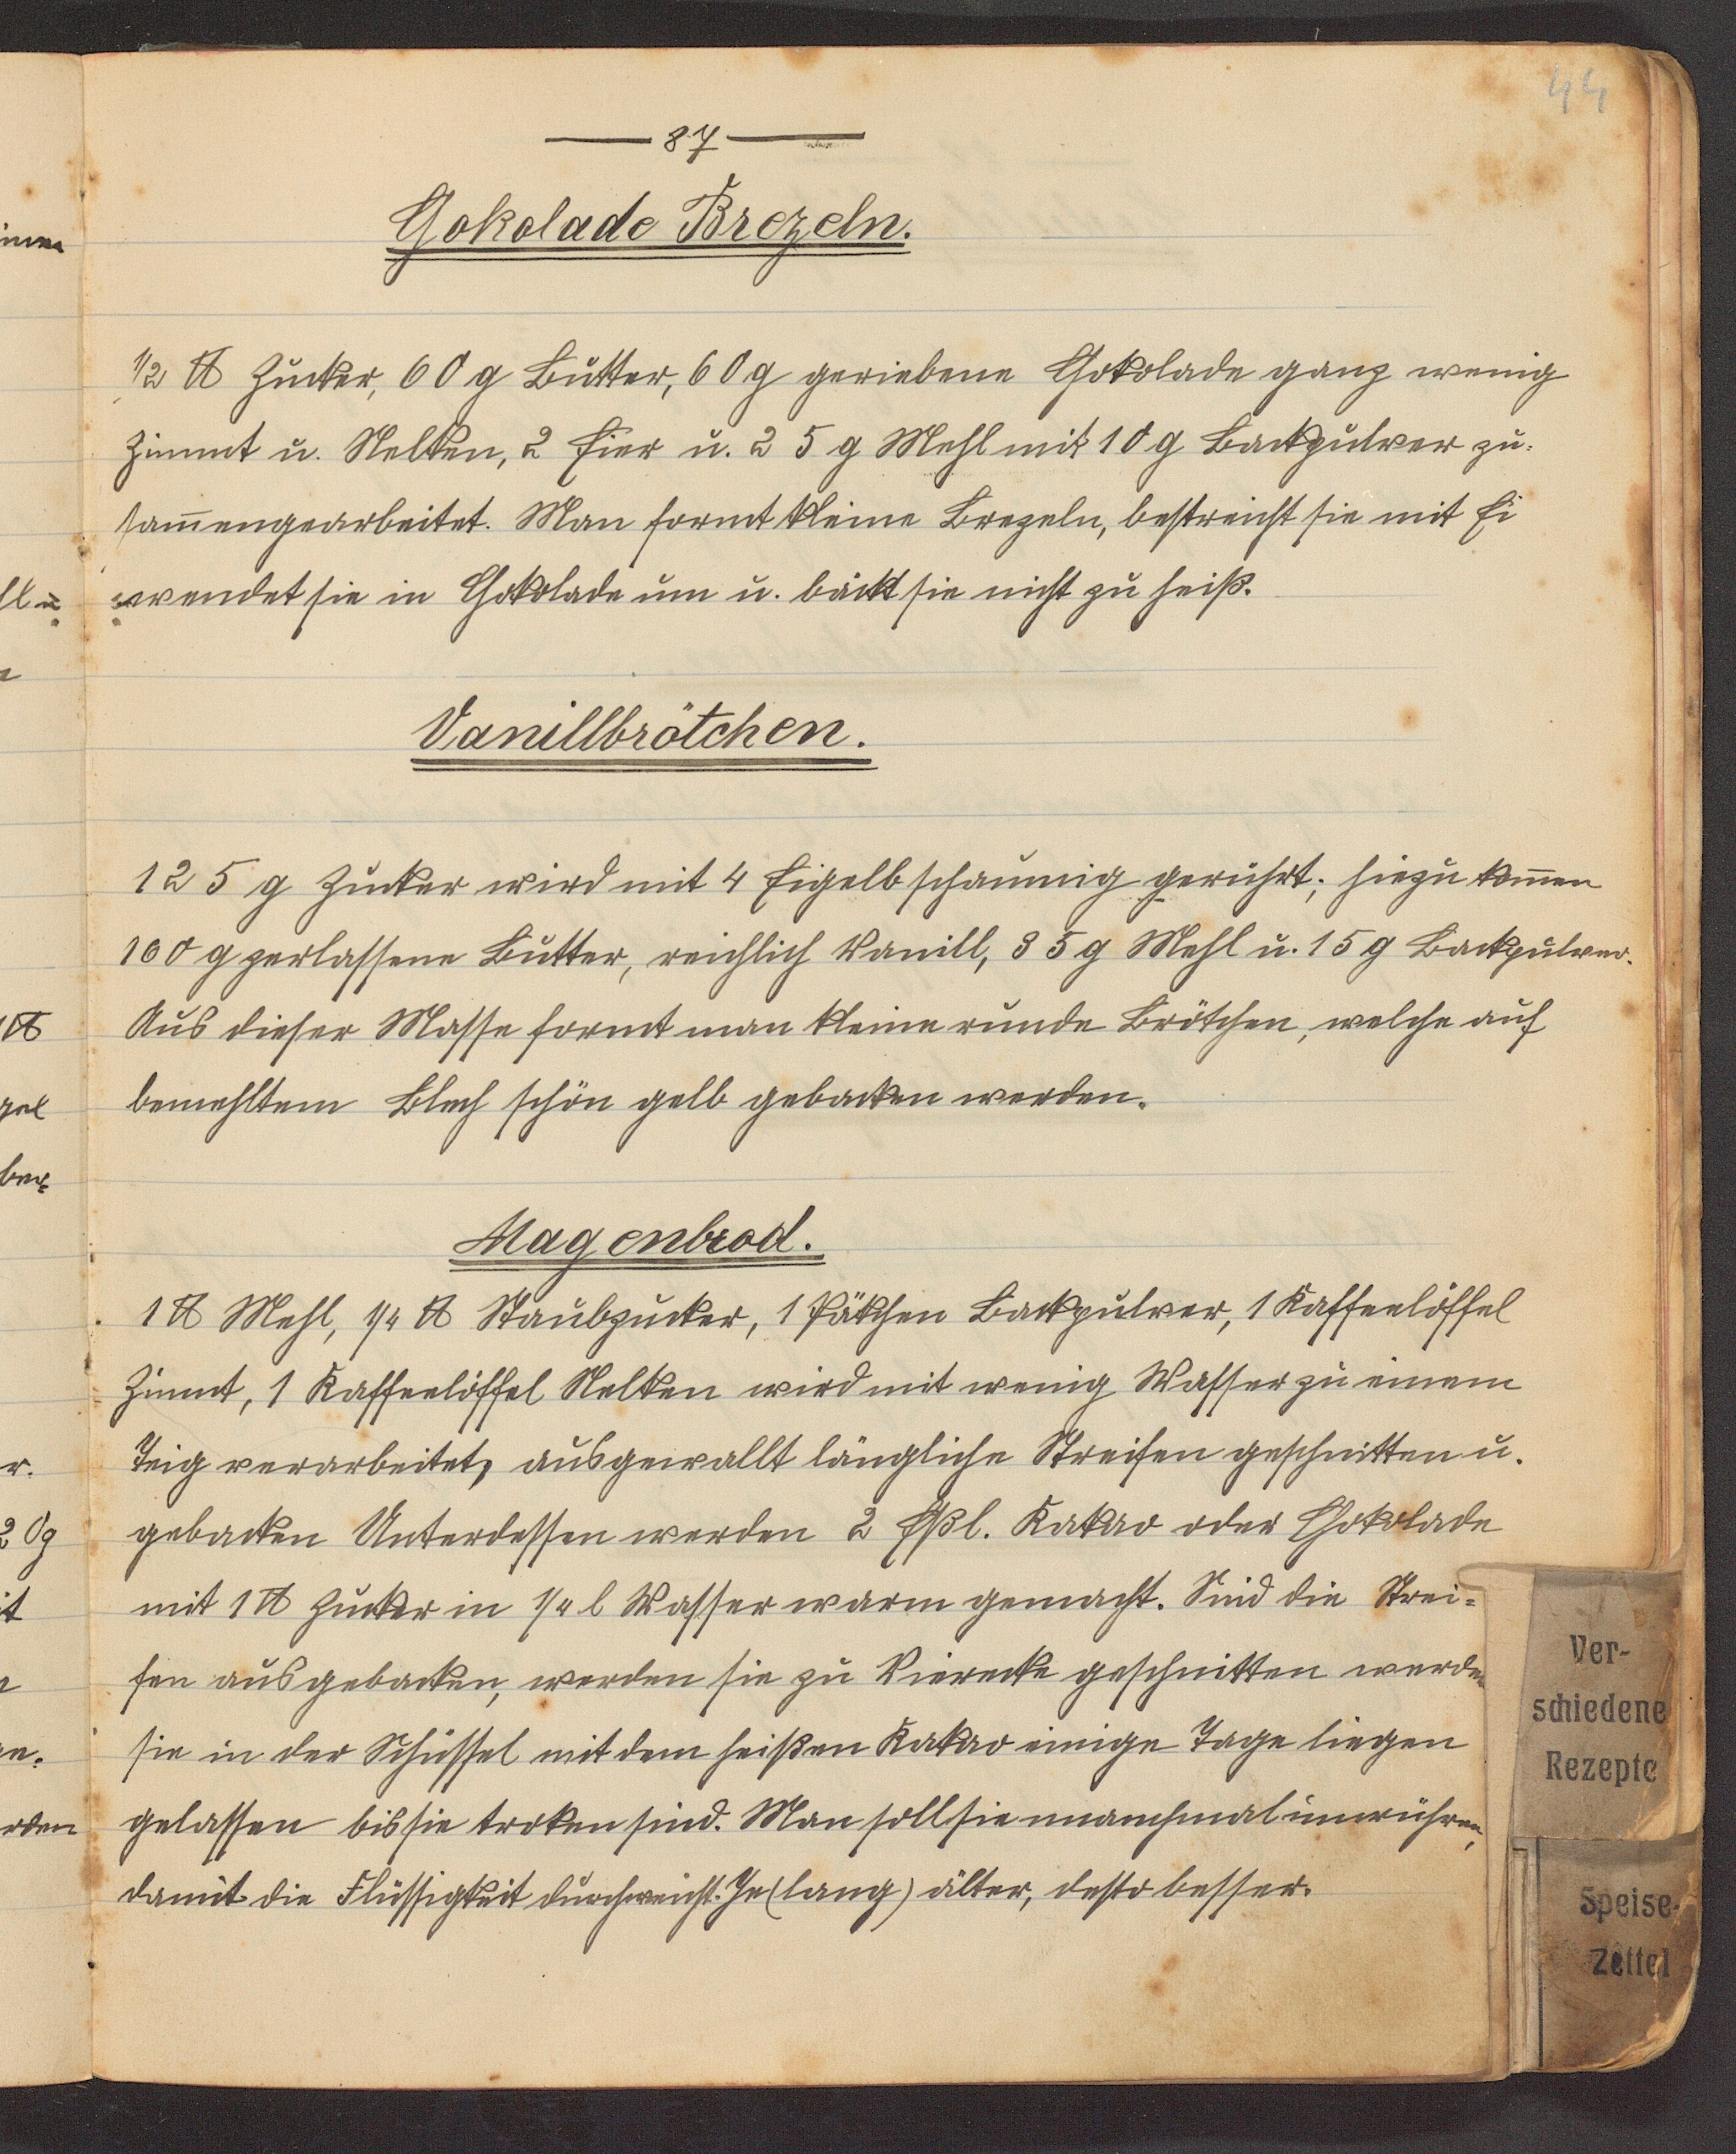 44
— 87 —
Chokolade Brezeln.
1/2 ℔ Zucker, 60 g Butter, 60 g geriebene Chokolade ganz wenig
Zimmt u. Nelken, 2 Eier u. 25 g Mehl mit 10 g Backpulver zu-
sam̅engearbeitet. Man formt kleine Brezeln, bestreicht sie mit Ei
wendet sie in Chokolade um u. bäckt sie nicht zu heiß.
Vanillbrötchen.
125 g Zucker wird mit 4 Eigelb schaumig gerührt; hiezu kom̅en
100 g zerlassene Butter, reichlich Vanill, 35 g Mehl u. 15 g Backpulver.
Aus dieser Masse formt man kleine runde Brötchen, welche auf
bemehltem Blech schön gelb gebacken werden.
Magenbrod.
1 ℔ Mehl, 1/4 ℔ Staubzucker, 1 Päkchen Backpulver, 1 Kaffeelöffel
Zimmt, 1 Kaffeelöffel Nelken wird mit wenig Wasser zu einem
Teig verarbeitet, ausgewallt längliche Streifen geschnitten u.
gebacken Unterdessen werden 2 Eßl. Kakao oder Chokolade
mit 1 ℔ Zucker in 1/4 l Wasser warm gemacht. Sind die Strei-
fen ausgebacken, werden sie zu Vierecke geschnitten werden
sie in der Schüssel mit dem heißen Kakao einige Tage liegen
gelassen bis sie troken sind. Man soll sie manchmal umrühren,
damit die Flüssigkeit durchweicht. Je (lang) älter, desto besser.
Ver-
schiedene
Rezepte
Speise-
Zettel